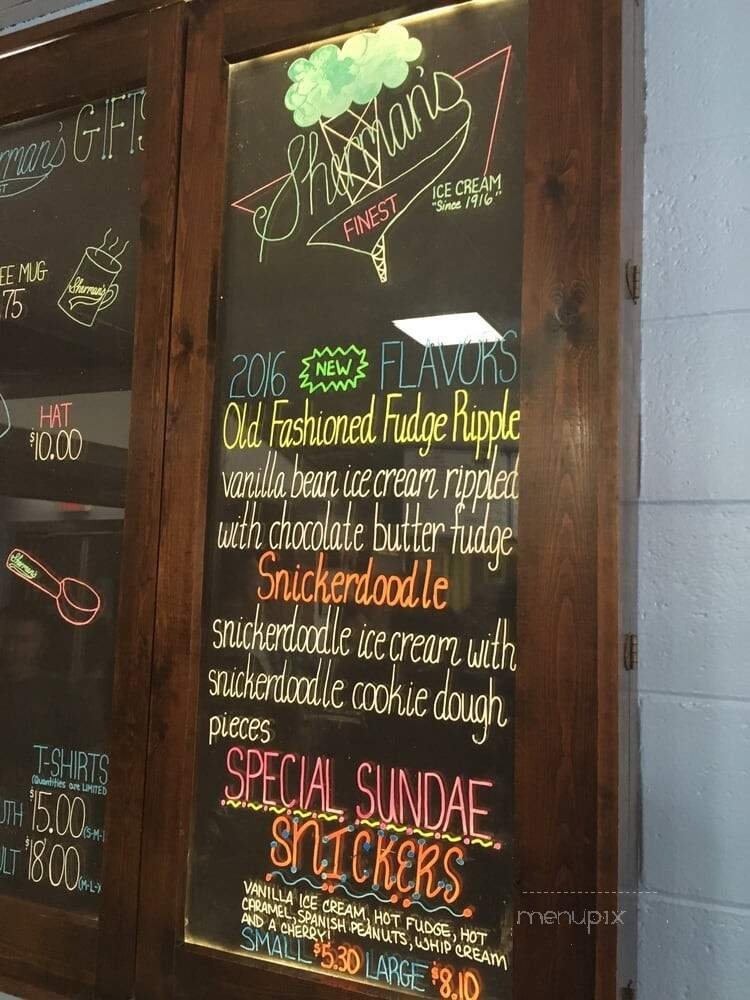 GIFTS
MUG
.75
Sherman's
HAT
$10.00
Sherman's
T-SHIRTS
(Quantities are LIMITED
$15.00 (S-M-
$18.00 (M-L-
Sherman's
FINEST
ICE CREAM
"Since 1916"
2016 NEW FLAVORS
Old Fashioned Fudge Ripple
vanilla bean ice cream rippled
with chocolate butter fudge
Snickerdoodle
snickerdoodle ice cream with
snickerdoodle cookie dough
pieces
SPECIAL SUNDAE
SNICKERS
VANILLA ICE CREAM, HOT FUDGE, HOT
CARAMEL, SPANISH PEANUTS, WHIP CREAM
AND A CHERRY!
SMALL $5.30 LARGE $8.10
menupix